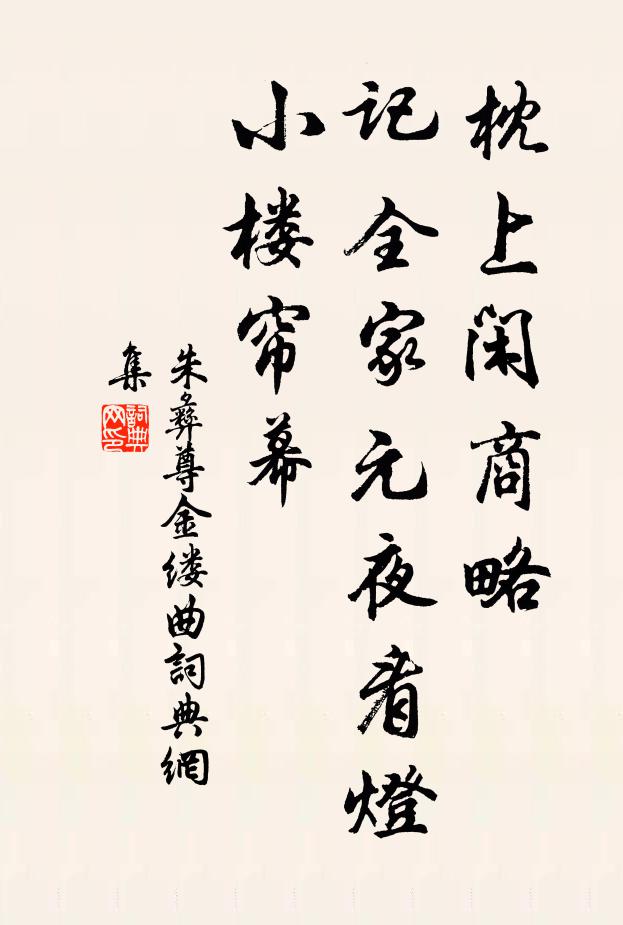 枕上闲商略
记全家元夜看燈
小楼帘幕
朱彝尊金缕曲詞典網
集
詞典网印